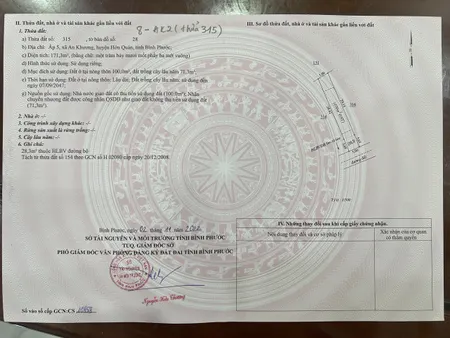 II. Thửa đất, nhà ở và tài sản khác gắn liền với đất
7-BE2 (thửa 315)
1. Thửa đất:
a) Thửa đất số: 315 , tờ bản đồ số: 28
b) Địa chỉ: Ấp 5, xã An Khương, huyện Hớn Quản, tỉnh Bình Phước,
c) Diện tích: 171,3m², (bằng chữ: một trăm bảy mươi mốt phẩy ba mét vuông)
d) Hình thức sử dụng: Sử dụng riêng,
đ) Mục đích sử dụng đất: Đất ở tại nông thôn 100,0m², đất trồng cây lâu năm 71,3m²,
e) Thời hạn sử dụng: Đất ở tại nông thôn: Lâu dài; Đất trồng cây lâu năm, sử dụng đến
07/09/2047;
g) Nguồn gốc sử dụng: Nhà nước giao đất có thu tiền sử dụng đất (100,0m²); Nhận
chuyển nhượng đất được công nhận QSDĐ như giao đất không thu tiền sử dụng đất
(71,3m²).
2. Nhà ở: -/-
3. Công trình xây dựng khác: -/-
4. Rừng sản xuất là rừng trồng: -/-
5. Cây lâu năm: -/-
6. Ghi chú:
28,3m² thuộc HLBV đường bộ
Tách từ thửa đất số 154 theo GCN số H 02080 cấp ngày 20/12/2004.
Bình Phước, ngày 02 tháng 11 năm
SỞ TÀI NGUYÊN VÀ MÔI TRƯỜNG TỈNH BÌNH PHƯỚC
TUQ. GIÁM ĐỐC SỞ
PHÓ GIÁM ĐỐC VĂN PHÒNG ĐĂNG KÝ ĐẤT ĐAI TỈNH BÌNH PHƯỚC
Số vào sổ cấp GCN: CS
III. Sơ đồ thửa đất, nhà ở và tài sản khác gắn liền với đất
315
IV. Những thay đổi sau khi cấp giấy chứng nhận.
Nội dung thay đổi và cơ sở pháp lý
Xác nhận của cơ quan
có thẩm quyền